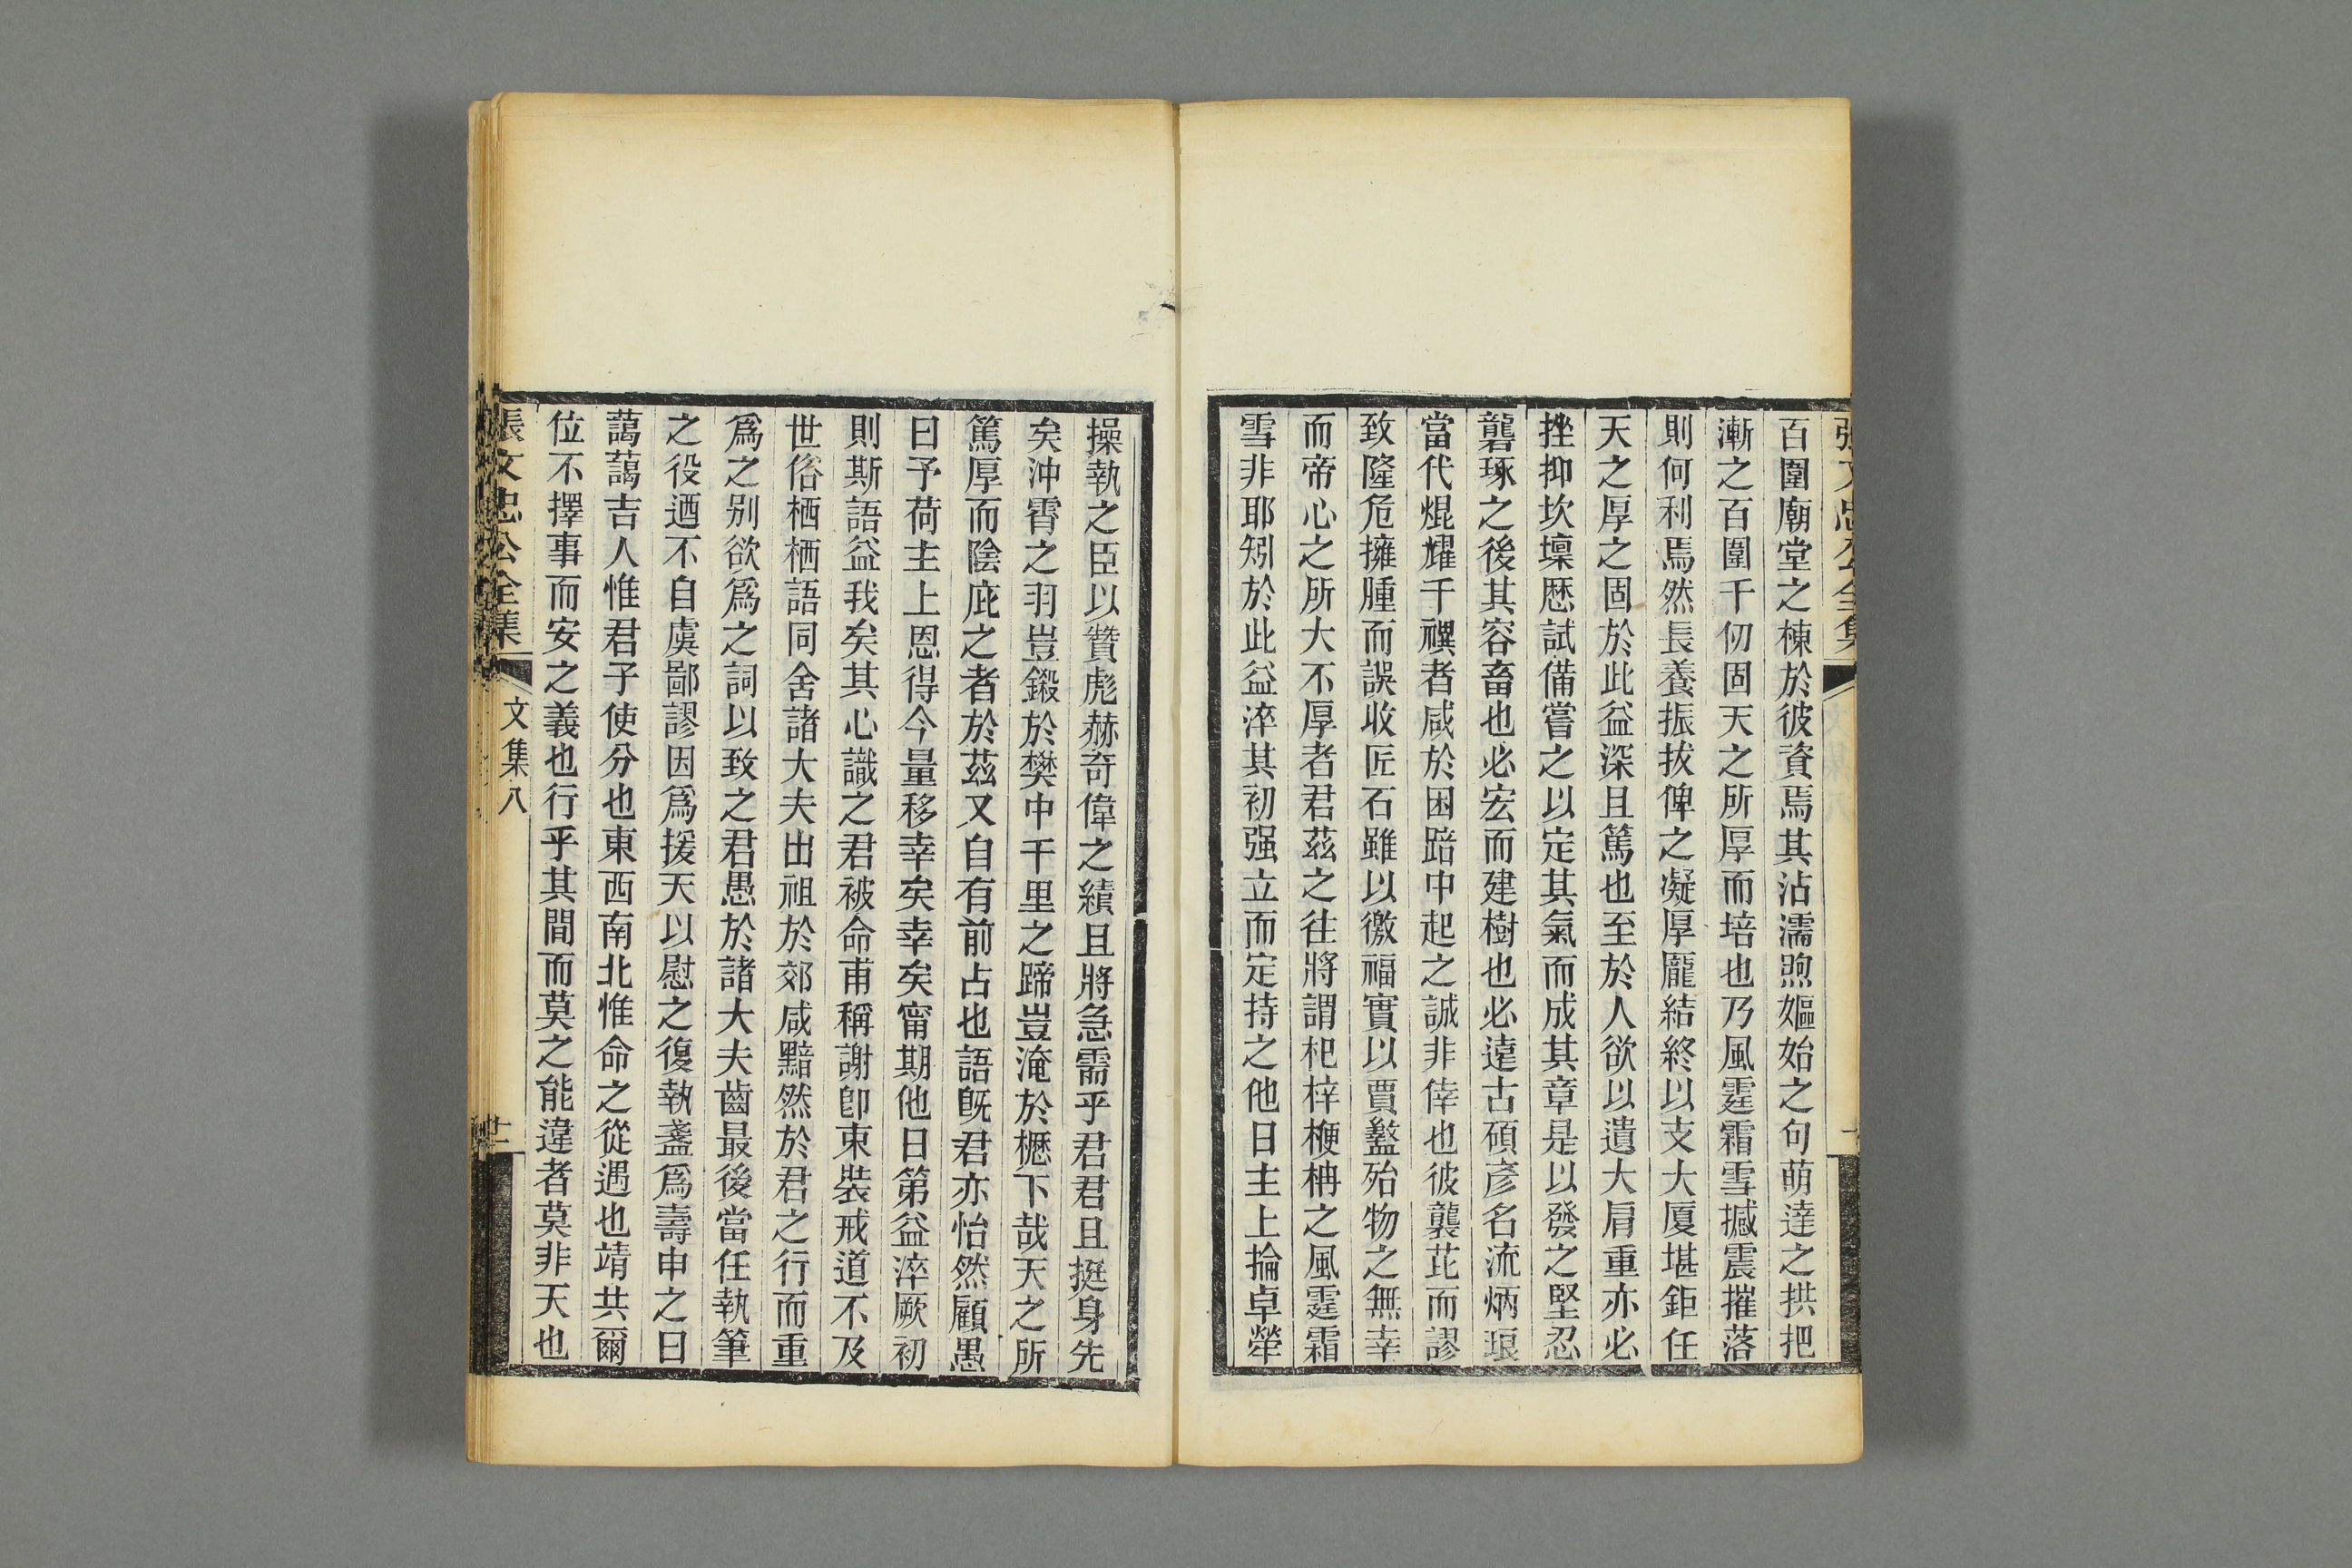 張文忠公全集
百圍廟堂之棟於彼資焉其沾濡煦嫗始之句萌達之拱把
漸之百圍千仞固天之所厚而培也乃風霆霜雪撼震摧落
則何利焉然長養振拔俾之凝厚龐結終以支大厦堪鉅任
天之厚之固於此益深且篤也至於人欲以遺大肩重亦必
挫抑坎壈歷試備嘗之以定其氣而成其章是以發之堅忍
礱琢之後其容畜也必宏而建樹也必遠古碩彥名流炳琅
當代焜耀千禩者咸於困踣中起之誠非倖也彼襲芘而謬
致隆危擁腫而誤收匠石雖以徼福實以賈盭殆物之無幸
而帝心之所大不厚者君茲之往將謂杞梓楩柟之風霆霜
雪非耶矧於此益淬其初强立而定持之他日主上掄卓犖
操執之臣以贊彪赫奇偉之績且將急需乎君君且挺身先
矣沖霄之羽豈鎩於樊中千里之蹄豈淹於櫪下哉天之所
篤厚而陰庇之者於茲又自有前占也語旣君亦怡然顧愚
曰予荷主上恩得今量移幸矣幸矣甯期他日第益淬厥初
則斯語益我矣其心識之君被命甫稱謝卽束裝戒道不及
世俗栖栖語同舍諸大夫出祖於郊咸黯然於君之行而重
爲之別欲爲之詞以致之君愚於諸大夫齒最後當任執筆
之役迺不自虞鄙謬因爲援天以慰之復執盞爲壽申之曰
藹藹吉人惟君子使分也東西南北惟命之從遇也靖共爾
位不擇事而安之義也行乎其間而莫之能違者莫非天也
張文忠公全集 文集八 廿一